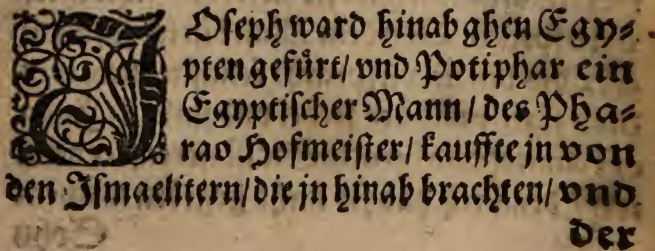 JOſeph ward hinab ghen Egy⸗
pten gefürt/ vnd Potiphar ein
Egyptiſcher Mann / des Pha⸗
rao Hofmeiſter/ kauffte jn von
den Iſmaelitern/ die jn hinab brachten/ vnd
der